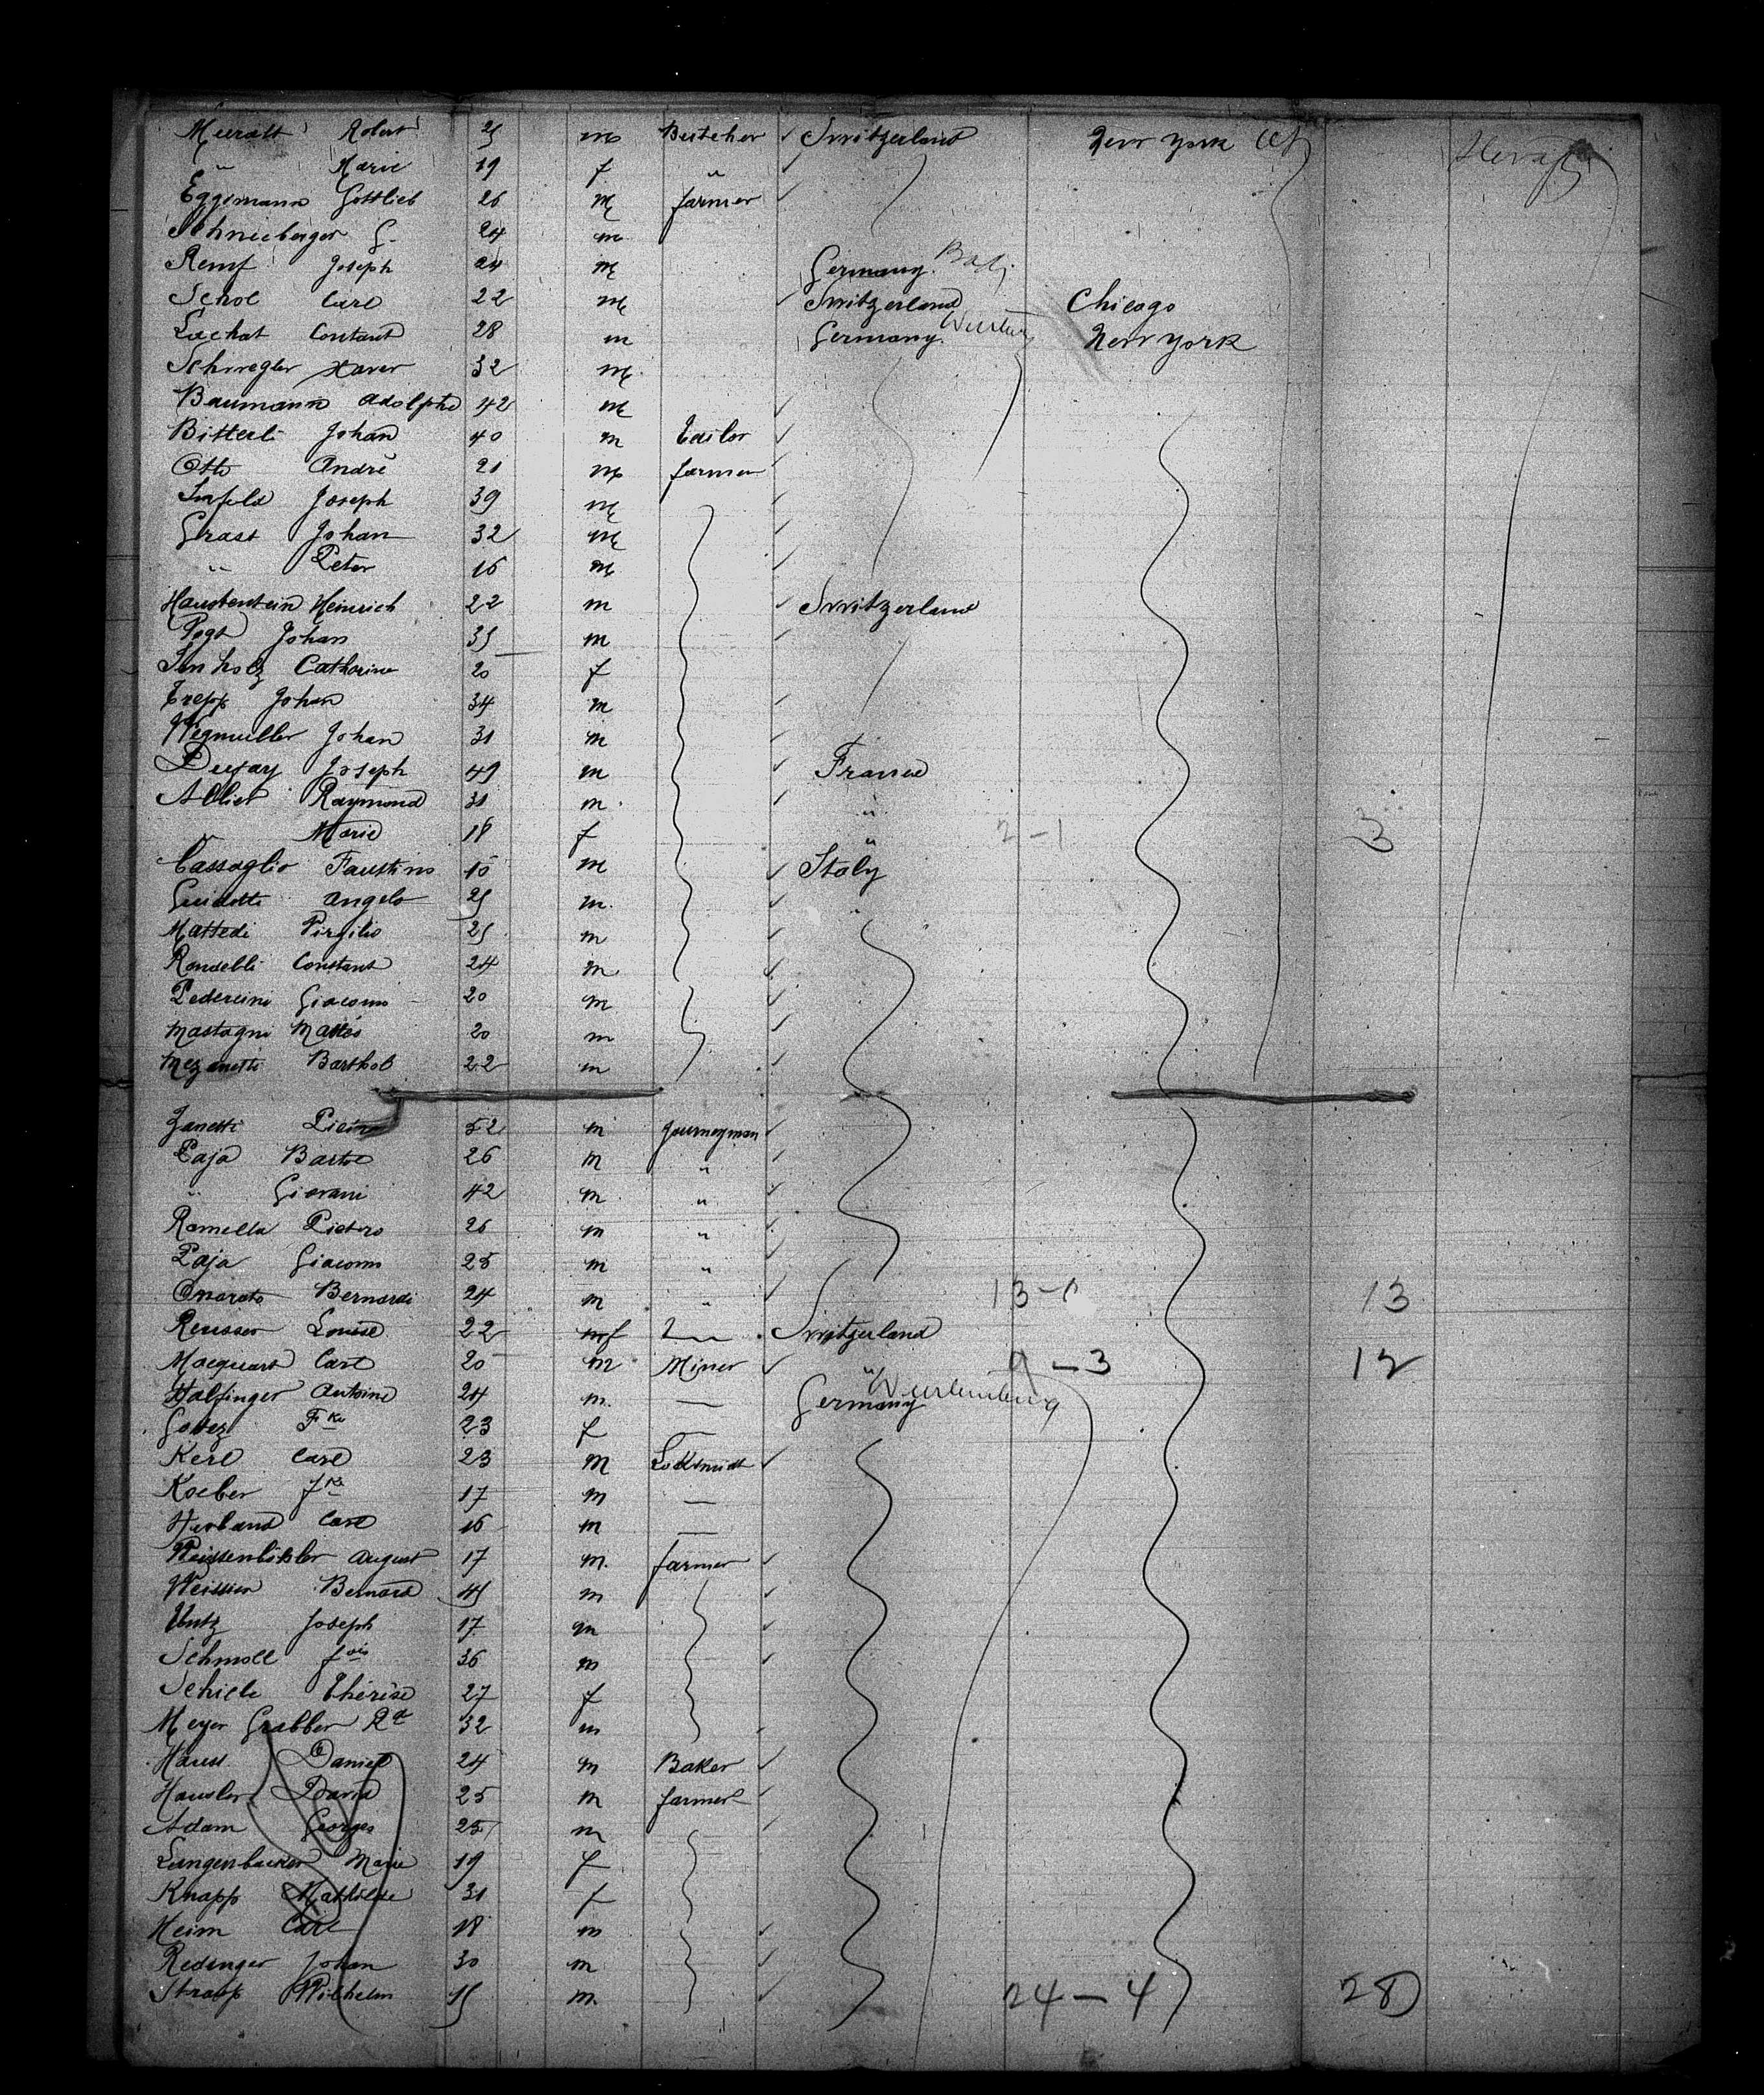 Muralt Robert 25 m Butcher ✓ Switzerland New York City
" Marie 19 f " ✓
Eggimann Gottlieb 26 m farmer ✓
Schneeberger G. 24 m
Joseph 24 m Germany
Schol Carl 22 m ✓ Switzerland Chicago
Lachat Constant 28 m Germany New York
Schwegler Xaver 32 m
Baumann Adolphe 42 m ✓
Bitterli Johan 40 m Tailor ✓
Otto André 21 m farmer ✓
Imfeld Joseph 39 m ✓
Grast Johan 32 m ✓
" Peter 16 m ✓
Haustenstein Heinrich 22 m ✓ Switzerland
Vogt Johan 35 m ✓
Imholz Catharine 20 f
Trepp Johan 34 m ✓
Wegmuller Johan 31 m ✓
Joseph 49 m ✓ France
Allier Raymond 31 m ✓ "
" Marie 18 f " 2-1 3
Cassaglio Faustino m ✓ Italy
Guidotti Angelo 25 m ✓ "
Mattedi Virgilio 25 m ✓
Rondelli Constant 24 m ✓
Pedercini Giacomo 20 m ✓
Mastagni 20 m ✓
Mezanetti Barthol 22 m ✓
Zanetti 52 m Journeyman ✓
Paja 26 m " ✓
" Giovani 42 m " ✓
Ramella Pietro 26 m " ✓
Paja Giacomo 25 m " ✓
Onorato Bernardi 24 m " ✓ 13 13
Reusser Louise 22 f Switzerland
Macquart Carl 20 m Miner ✓ " 9 - 3 12
Halfinger Antoine 24 m. — Germany Wurtemburg
Gotez Fke 23 f —
Kerl Carl 23 m Locksmidt ✓
Koeber fke 17 m —
Carl 16 m —
August 17 m. farmer ✓
Bernard 45 m ✓
Joseph 17 m ✓
Schmoll fois 36 m ✓
Schiele Thérèse 27 f
Meyer Grabber Rd 32 m
Hauss Daniel 24 m Baker ✓
Hausler David 25 m farmer ✓
Adam Georges 25 m ✓
Langenbacker Marie 19 f
Knapp Mathilde 31 f
Heim Carl 18 m ✓
Redinger Johan 30 m ✓
Wilhelm 15 m. ✓ 24 - 4 28